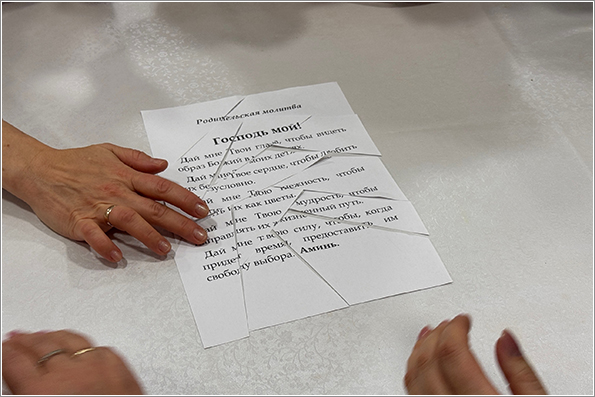 Родительская молитва
Господь мой!
Дай мне Твои глаза, чтобы видеть
образ Божий в моих детях.
Дай мне Твое сердце, чтобы любить
их безусловно.
мне Твою нежность, чтобы
их как цветы,
мне Твою мудрость, чтобы
их жизненный путь.
Дай мне твою силу, чтобы, когда
придет время, предоставить им
свободу выбора. Аминь.